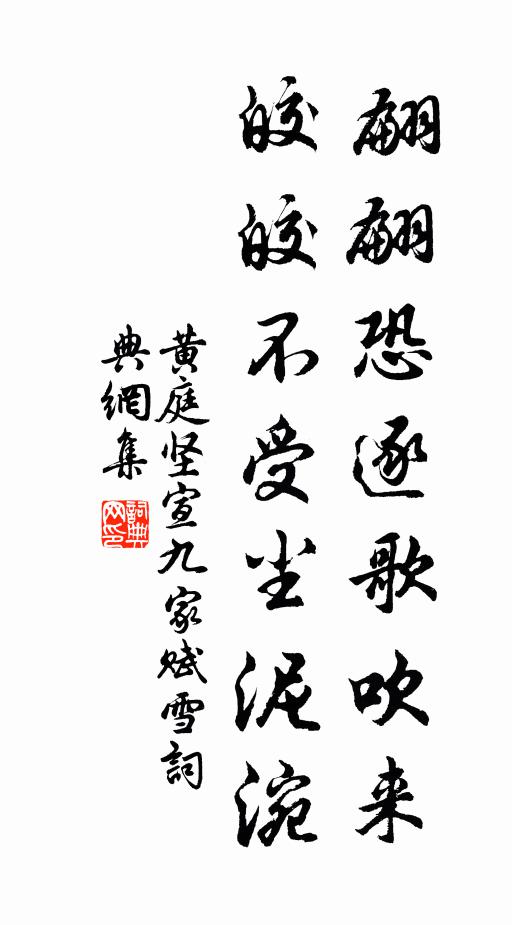 翩翩恐逐歌吹来
皎皎不受尘泥涴
黄庭坚宣九家赋雪詞
典網集
詞典
网印